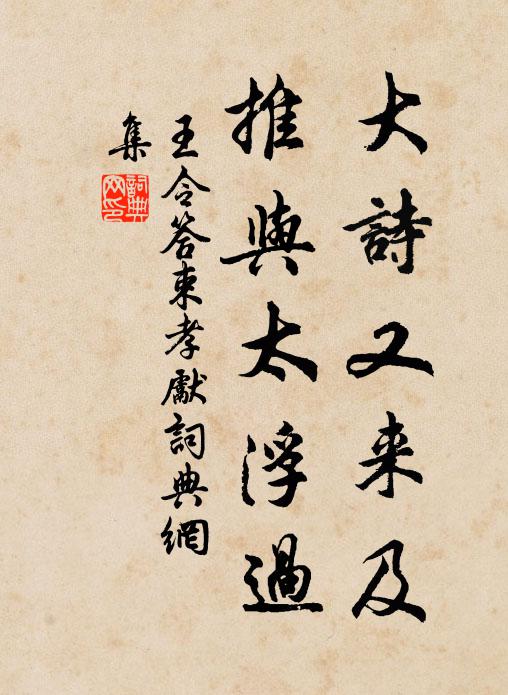 大詩又来及
推與太浮過
王令答束孝獻詞典網
集
詞典网印